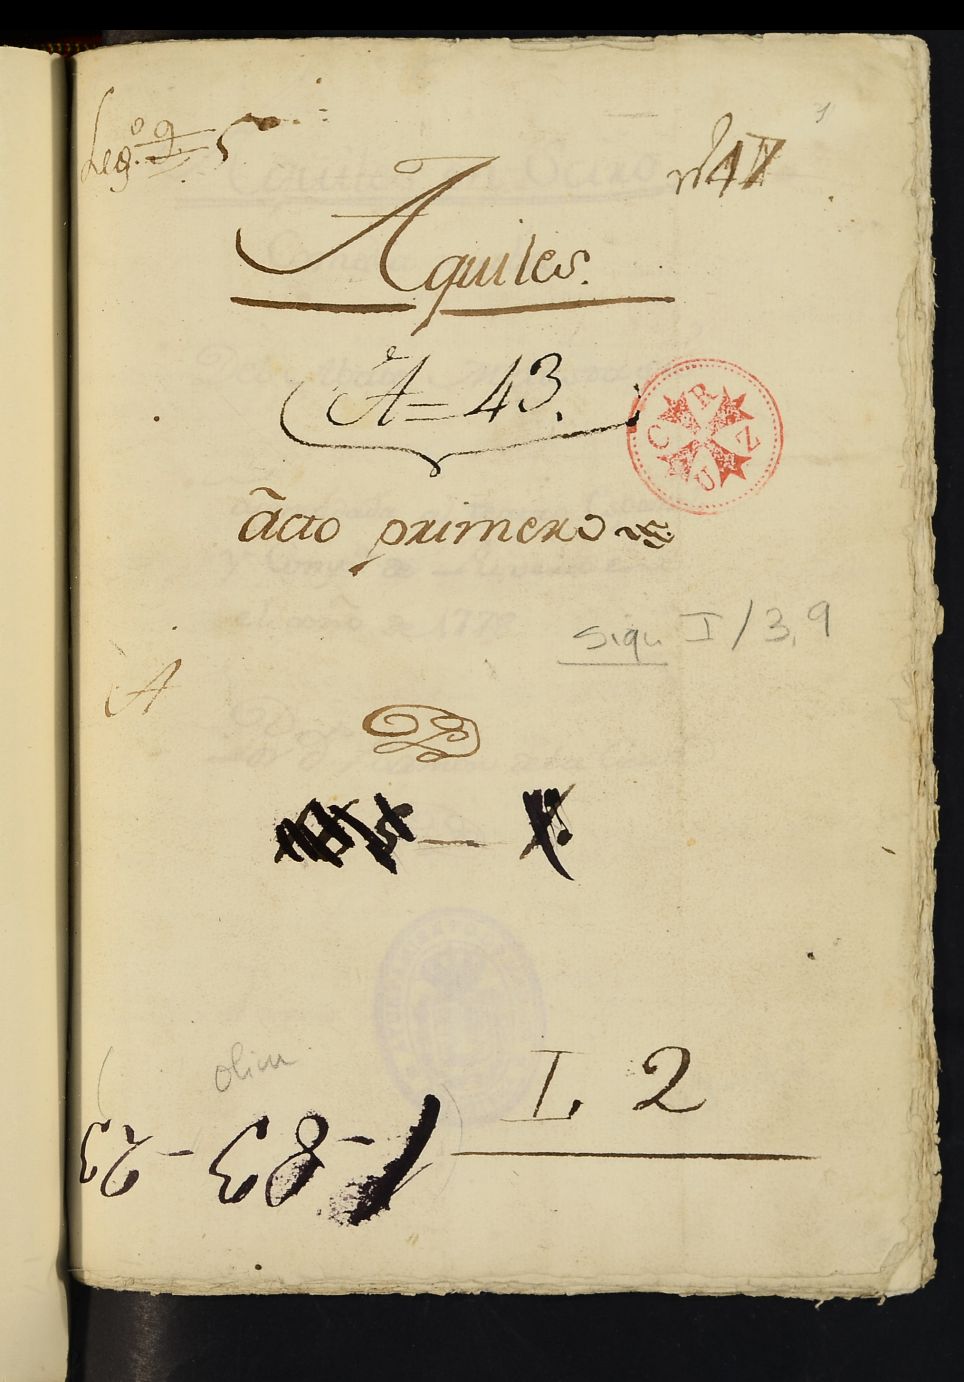 1
Leg.º 9. 5
nº 47
Aquiles.
A = 43.
CRUZ
ãcto primero
Sign I/3,9
A
I, 2
olim
1-83-23